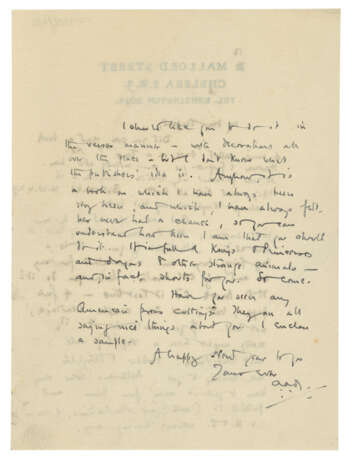 I should like you to do it in
the verses manner – with decorations all
over the place – but I don't know what
the publishers' idea is. Anyhow it is
a book on which I have always been
very keen, and which, I have always felt,
has never had a chance, so you can
understand how keen I am that you should
do it. It is full of Kings & Princesses
and dragons & other strange animals –
in fact, shouts for you. So come.
Have you seen any
American press cuttings? They are all
saying nice things about you. I enclose
a sample.
A happy new year to you
Yours ever